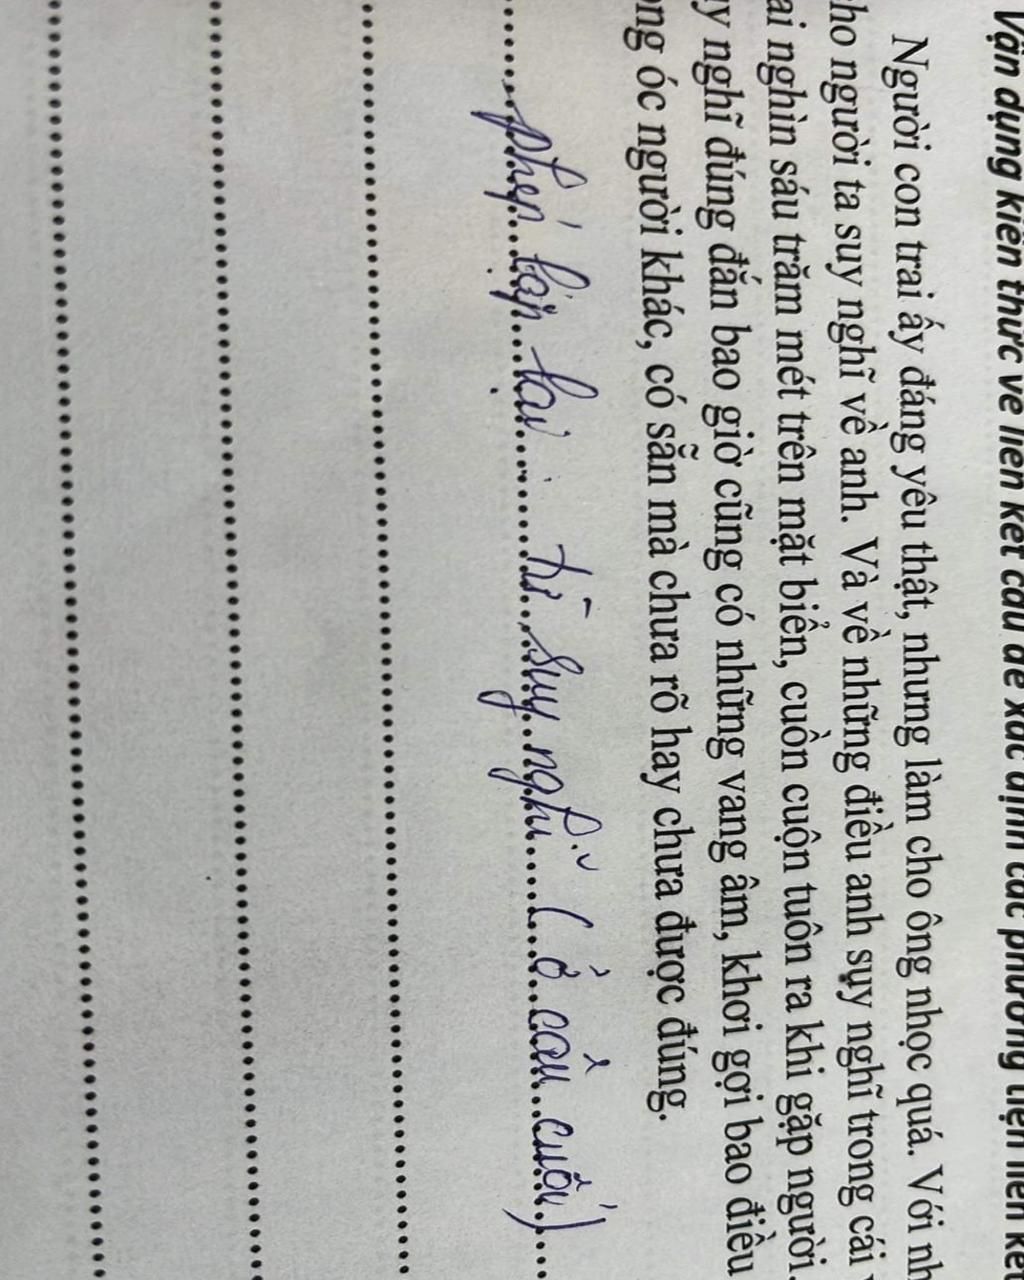 Vận dụng kiến thức về liên kết câu để xác định các phương tiện liên kết
Người con trai ấy đáng yêu thật, nhưng làm cho ông nhọc quá. Với
cho người ta suy nghĩ về anh. Và về những điều anh suy nghĩ trong cái
nghìn sáu trăm mét trên mặt biển, cuồn cuộn tuôn ra khi gặp người.
nghĩ đúng đắn bao giờ cũng có những vang âm, khơi gợi bao điều
óc người khác, có sẵn mà chưa rõ hay chưa được đúng.
phép lặp lại : từ suy nghĩ ( ở câu cuối )